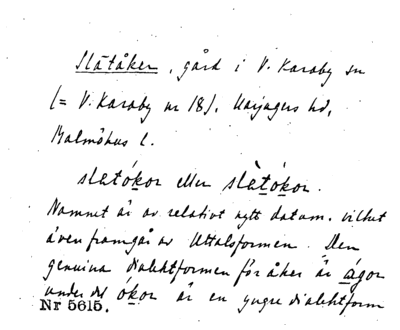 Slätåker, gård i V. Karaby sn
(= V. Karaby nr 18), Harjagers hd,
Malmöhus l.
slatókor eller slàtókor.
Namnet är av relativt nytt datum, vilket
även framgår av uttalsformen. Den
genuina dialektformen för åker är ágor
under det ókor är en yngre dialektform
Nr 5615.